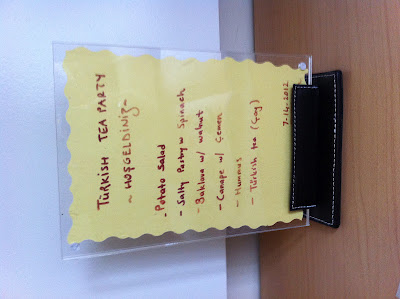 TÜRKISH TEA PARTY
~ HOŞGELDİNİZ ~
- Potato Salad
- Salty Pastry w Spinach
- Baklava w/ walnut
- Canape w/ Çemen
- Hummus
- Türkish tea (Çay)
7-14-2012